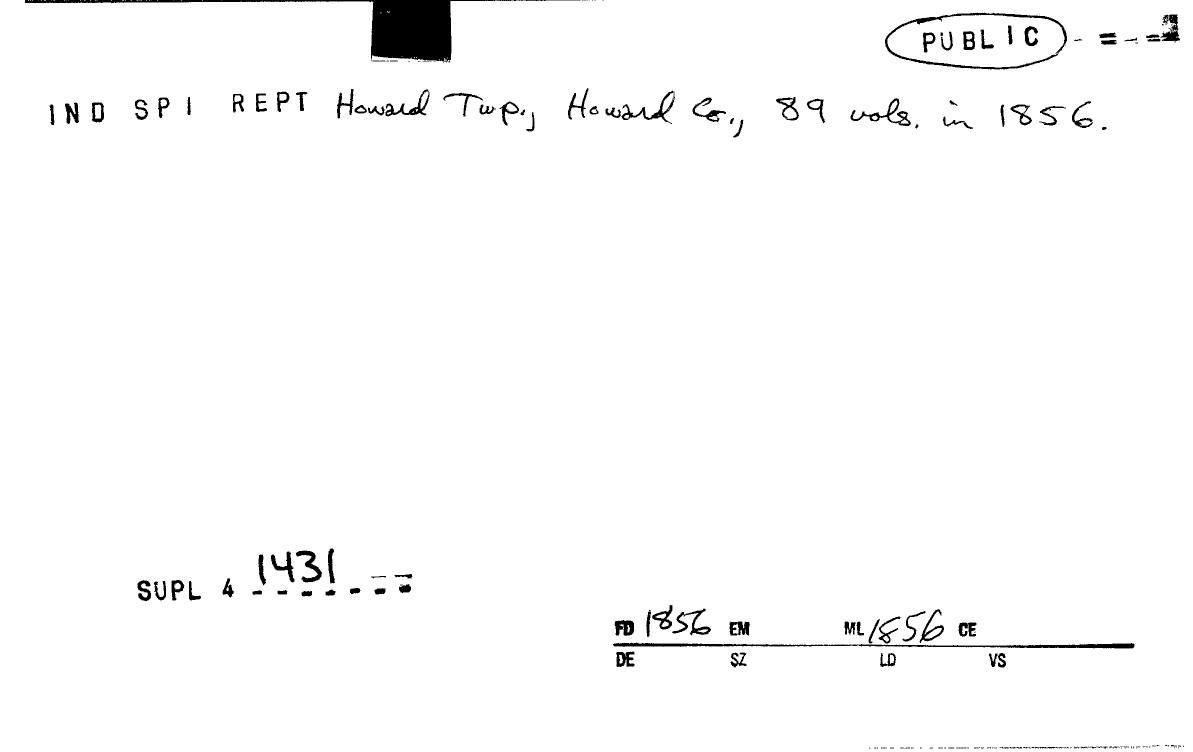 PUBLIC
IND SPI REPT Howard Twp., Howard Co., 89 vols. in 1856.
SUPL 4 1431
FD 1856 EM ML 1856 CE
DE SZ LD VS